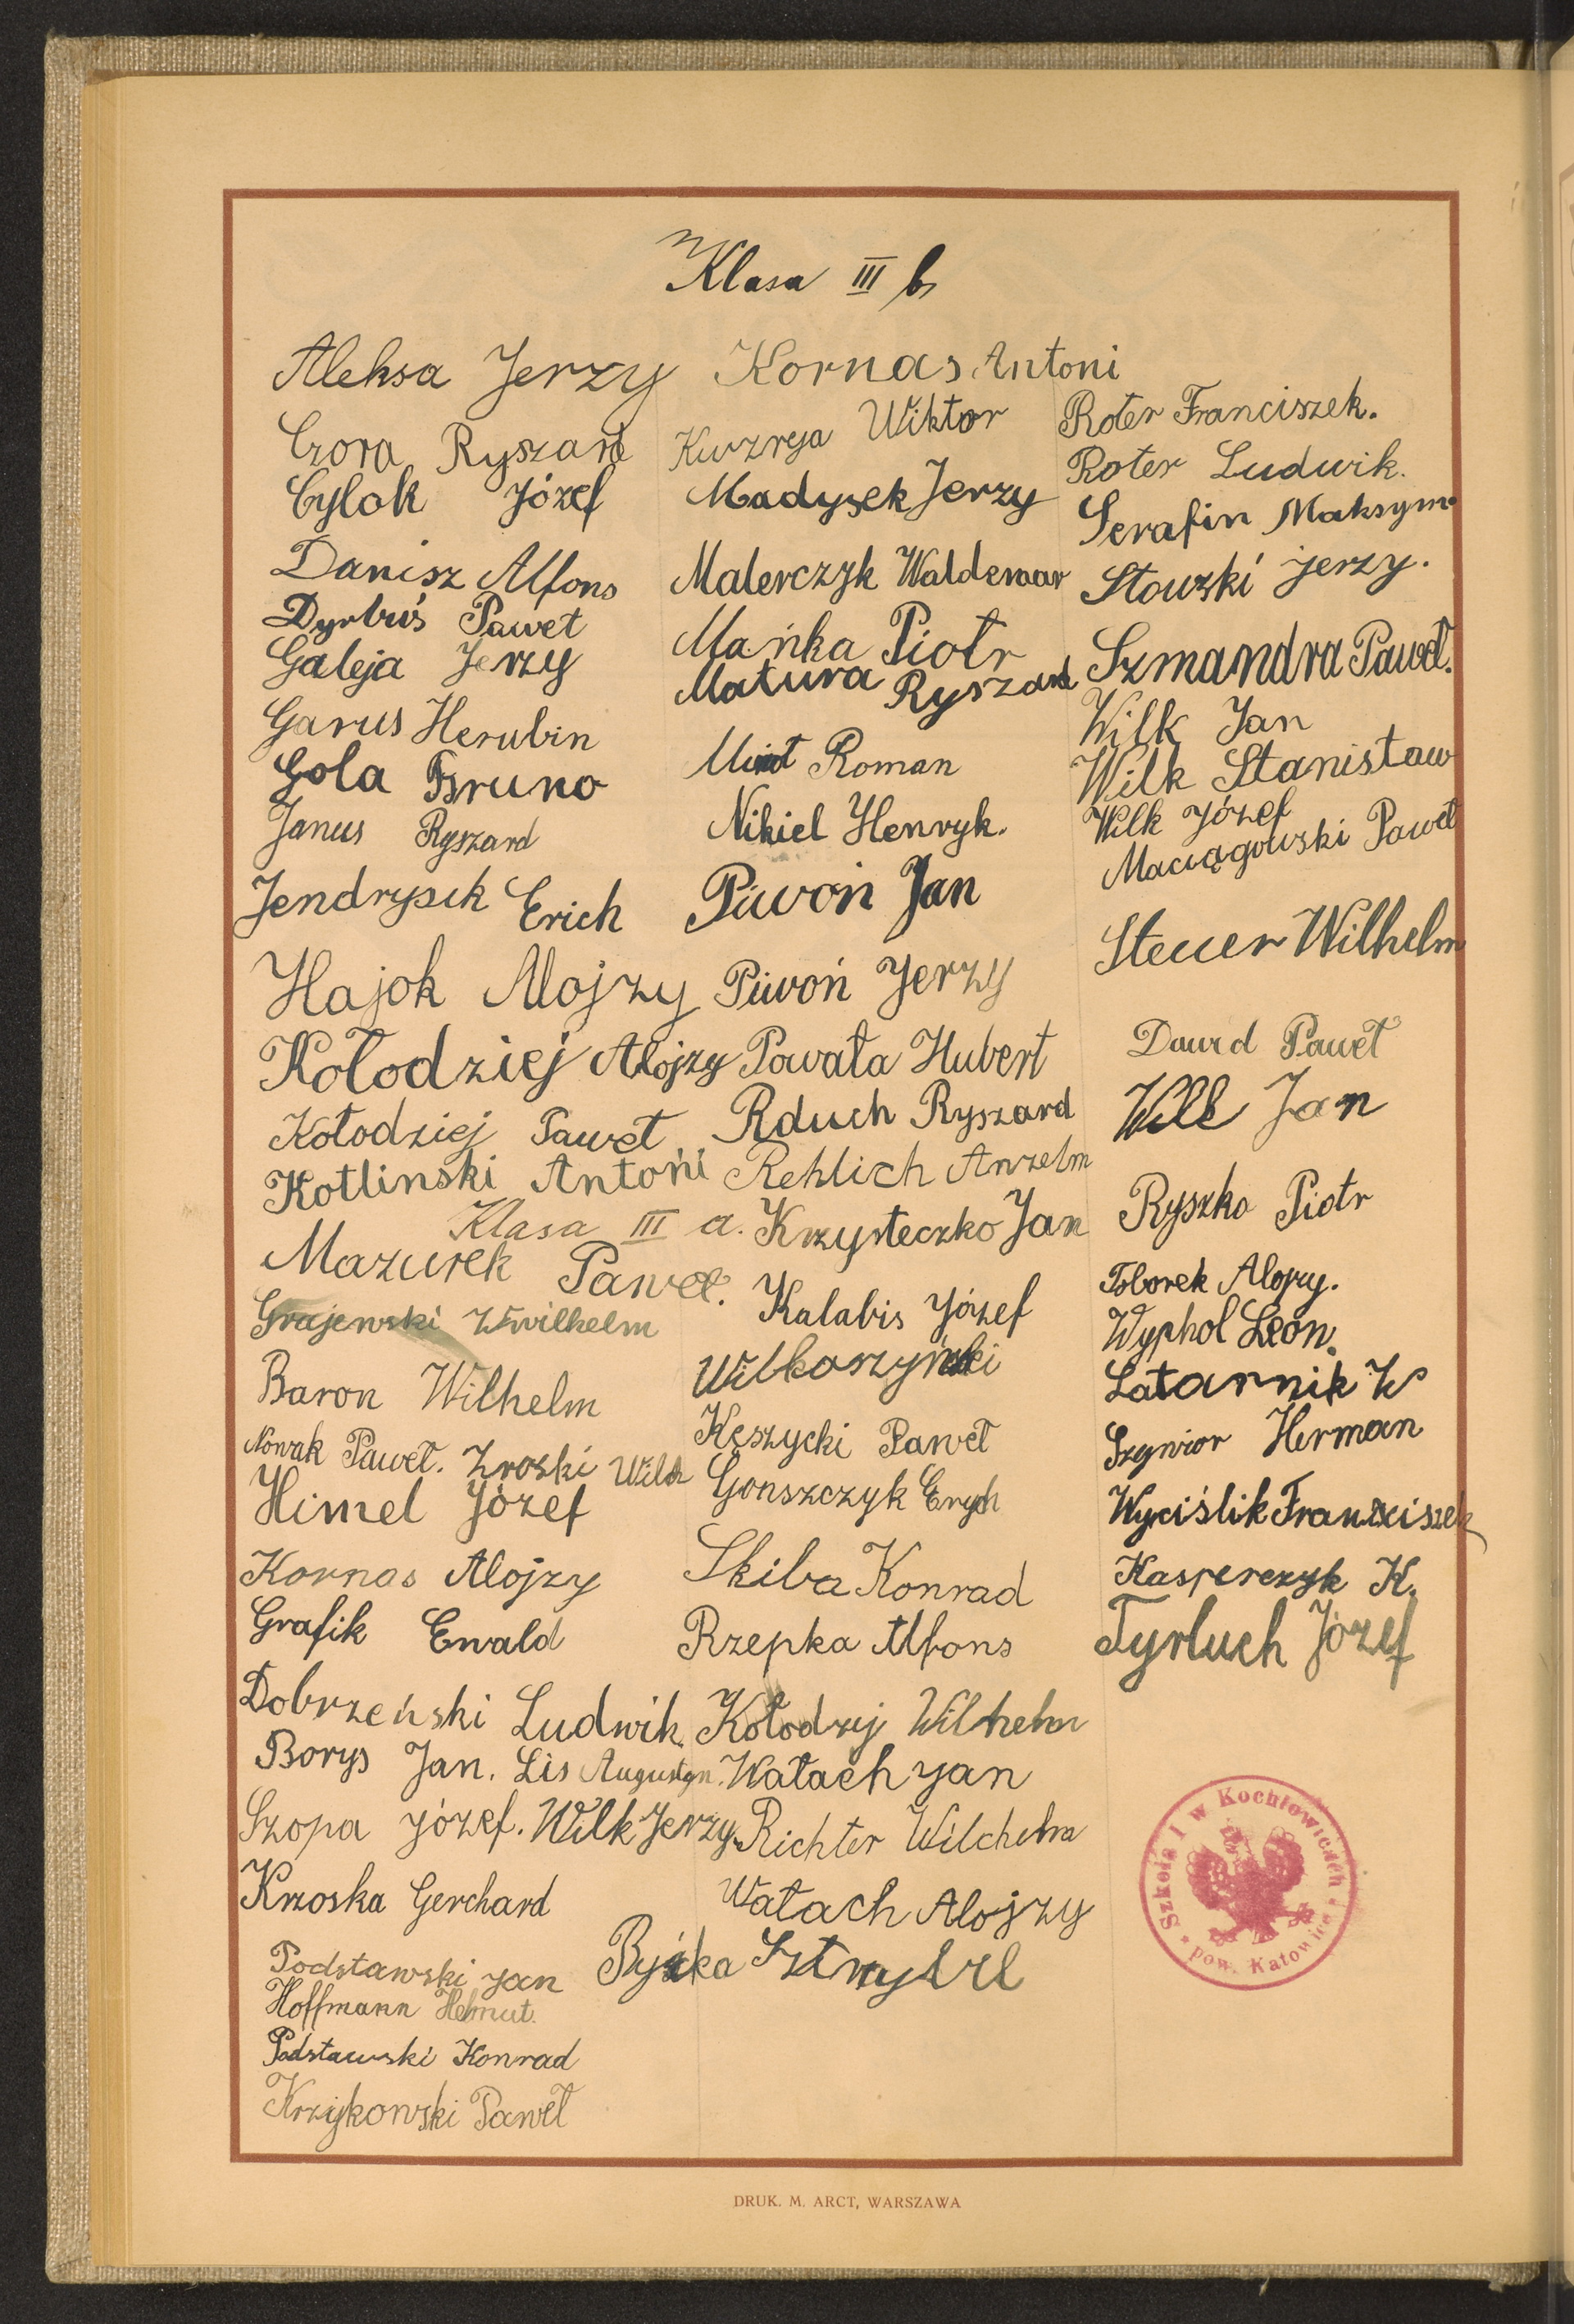 Klasa III b
Aleksa Jerzy
Czora Ryszard
Cylok Józef
Danisz Alfons
Dyrbuś Paweł
Galeja Jerzy
Garus Herubin
Gola Bruno
Janus Ryszard
Jendrysik Erich
Hajok Alojzy
Kołodziej Alojzy
Kołodziej Paweł
Kotlinski Antoni
Kornas Antoni
Wiktor
Madysek Jerzy
Malerczyk Waldemar
Mańka Piotr
Matura Ryszard
Roman
Nikiel Henryk.
Piwoń Jan
Piwoń Jerzy
Powała Hubert
Rduch Ryszard
Rehlich Anzelm
Roter Franciszek.
Roter Ludwik.
Serafin Maksym.
Jerzy.
Szmandra Paweł.
Wilk Jan
Wilk Stanisław
Wilk Józef
Maciągowski Paweł
Steuer Wilhelm
Dawid Paweł
Jan
Ryszka Piotr
Klasa III a.
Mazurek Paweł.
Grajewski Wwilhelm
Baron Wilhelm
Nowak Paweł. Zroski
Himel Józef
Kornas Alojzy
Grafik Ewald
Dobrzeński Ludwik.
Borys Jan. Lis Augustyn.
Szopa Józef. Wilk Jerzy
Krzoska Gerchard
Podstawski Jan
Hoffmann Helmut.
Podstawski Konrad
Krzykowski Paweł
Krzysteczko Jan
Kalabis Józef
Kęszycki Paweł
Gonszczyk Erych
Skiba Konrad
Rzepka Alfons
Kołodzej Wilhelm
Wałach Jan
Richter Wilchelm
Wałach Alojzy
Toborek Alojzy.
Wyphol Leon.
Latarnik W
Szywior Herman
Wyciślik Franciszek
Kasperczyk K.
Tyrluch Józef
Szkoła I w Kochłowicach
pow. Katowice
DRUK. M. ARCT, WARSZAWA